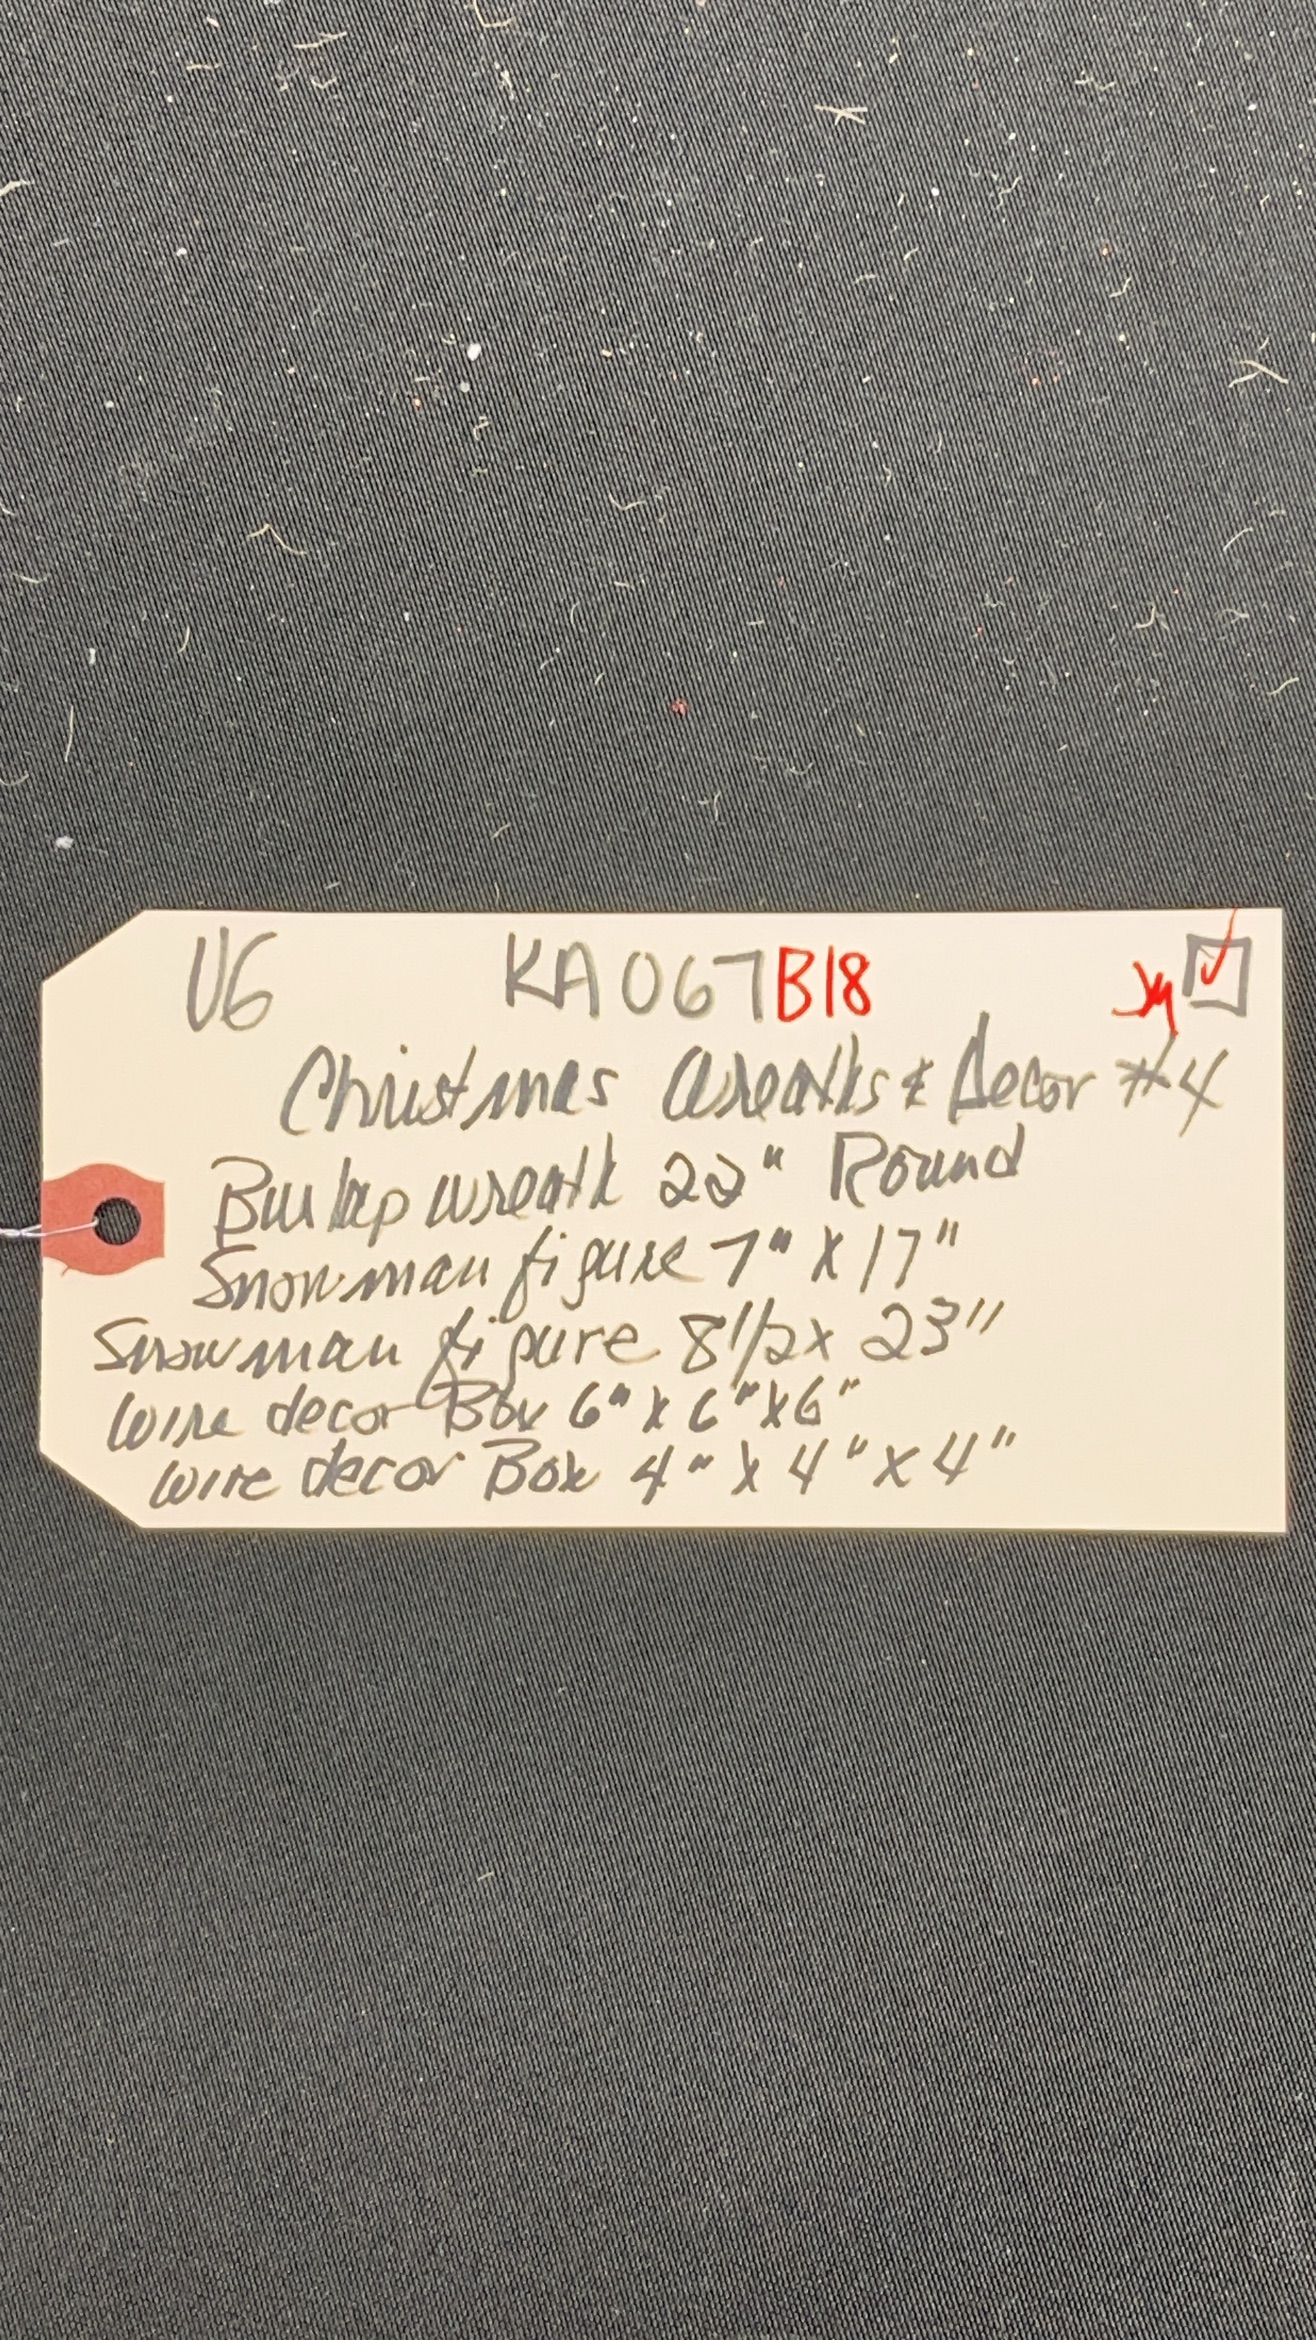 VG KA067B18
Christmas Wreaths & Decor #4
Burlap wreath 22" Round
Snowman figure 7" X 17"
Snowman figure 8 1/2 x 23"
Wire decor Box 6" X 6" X 6"
Wire decor Box 4" X 4" X 4"